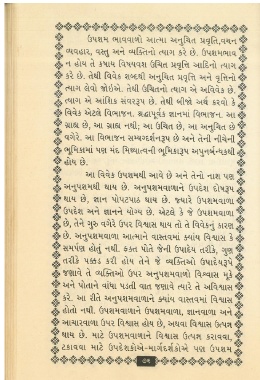 ઉપશમ ભાવવાળો આત્મા અનુચિત પ્રવૃત્તિ,વચન
વ્યવહાર, વસ્તુ અને વ્યક્તિનો ત્યાગ કરે છે. ઉપશમભાવ
ન હોય તે કષાય વિષયવશ ઉચિત પ્રવૃત્તિ આદિનો ત્યાગ
કરે છે. તેથી વિવેક શબ્દથી અનુચિત પ્રવૃત્તિ અને વૃત્તિનો
ત્યાગ લેવો જોઇએ. તેથી ઉચિતનો ત્યાગ એ અવિવેક છે.
ત્યાગ એ આંશિક સંવરરૂપ છે. તેથી બીજો અર્થ કરવો કે
વિવેક એટલે વિભાજન. શ્રદ્ધાપૂર્વક જ્ઞાનમાં વિભાજન. આ
ગ્રાહ્ય છે, આ ગ્રાહ્ય નથી; આ ઉચિત છે, આ અનુચિત છે
વગેરે. આ વિભાજન સમ્યગ્દર્શનરૂપ છે અને તેની નીચેની
ભૂમિકામાં પણ મંદ મિથ્યાત્વની ભૂમિકારૂપ અપુનર્બન્ધકથી
હોય છે.
આ વિવેક ઉપશમથી આવે છે અને તેનો નાશ પણ
અનુપશમથી થાય છે. અનુપશમવાળાને ઉપદેશ દોષરૂપ
થાય છે, જ્ઞાન પોપટપાઠ થાય છે. જ્યારે ઉપશમવાળા
ઉપદેશ અને જ્ઞાનને યોગ્ય છે. એટલે કે જે ઉપશમવાળા
છે, તેને ગુરુ વગેરે ઉપર વિશ્વાસ થાય તો તે વિવેકનું કારણ
છે. અનુપશમવાળા આત્માને વાસ્તવમાં ક્યાંય વિશ્વાસ કે
સમર્પણ હોતું નથી. ફક્ત પોતે જેની ઉપાદેય તરીકે, ગુણ
તરીકે પક્કડ કરી હોય તેને જે વ્યક્તિઓ ઉપાદેયરૂપે
જણાવે તે વ્યક્તિઓ ઉપર અનુપશમવાળો વિશ્વાસ મૂકે
અને પોતાને વાંધા પડતી વાત જણાવે ત્યારે તે અવિશ્વાસ
કરે. આ રીતે અનુપશમવાળાને ક્યાંય વાસ્તવમાં વિશ્વાસ
હોતો નથી. ઉપશમવાળાને ઉપશમવાળા, જ્ઞાનવાળા અને
આચારવાળા ઉપર વિશ્વાસ હોય છે, અથવા વિશ્વાસ ઉત્પન્ન
થાય છે. માટે ઉપશમવાળાને વિશ્વાસ ઉત્પન્ન કરાવવા,
ટકાવવા માટે ઉપદેશકોએ-માર્ગદર્શકોએ પણ ઉપશમ